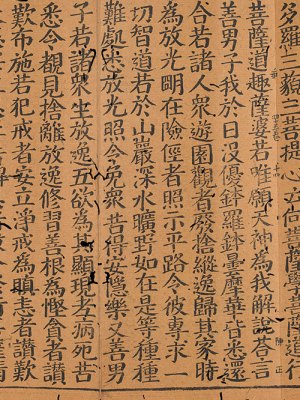 多羅三藐三菩提心立何菩薩道行
菩薩道趣薩婆若唯願天神為我解說答言
善男子我於日沒優鉢羅鉢曇摩華皆悉還
合若諸人眾遊園觀者廢捨縱逸歸其家時
為放光明在險徑者照示平路令彼專求一
切智道若於山巖深水曠野如在是等種種
難處悉放光照令免眾苦得安隱樂又善男
子若諸眾生放逸五欲為顯現老病死苦
悉令覩見捨離放逸修習善根為慳貪者讚
歎布施若犯戒者安立淨戒為瞋恚者讚歎